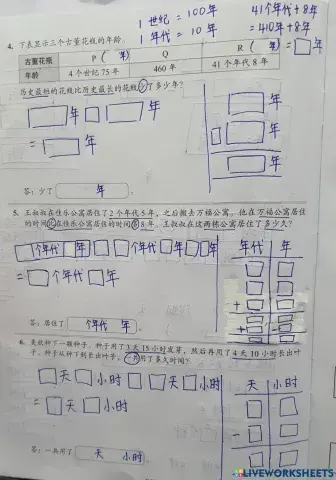 1 世纪 = 100年
41个年代+8年
1 年代 = 10 年
= 410年+8年
4. 下表显示三个古董花瓶的年龄。
= 年
古董花瓶 P ( 年) Q R ( 年)
年龄 4 个世纪 75 年 460 年 41 个年代 8 年
历史最短的花瓶比历史最长的花瓶少了多少年?
年 年 年
= 年 年
年
答: 少了 年 。
5. 王叔叔在佳乐公寓居住了 2 个年代 5 年, 之后搬去万福公寓。他在万福公寓居住
的时间比在佳乐公寓居住的时间多 8 年。王叔叔在这两栋公寓居住了多少久?
个年代 年 个年代 年 年 年代 年
= 个年代 年
+
+
答: 居住了 个年代 年 。
6. 美欣种下一颗种子。种子用了 3 天 15 小时发芽, 然后再用了 4 天 10 小时长出叶
子。种子从种下到长出叶子, 一共用了多久时间?
天 小时 天 小时 天 小时
= 天 小时
-
答: 一共用了 天 小时 。
LIVEWORKSHEETS